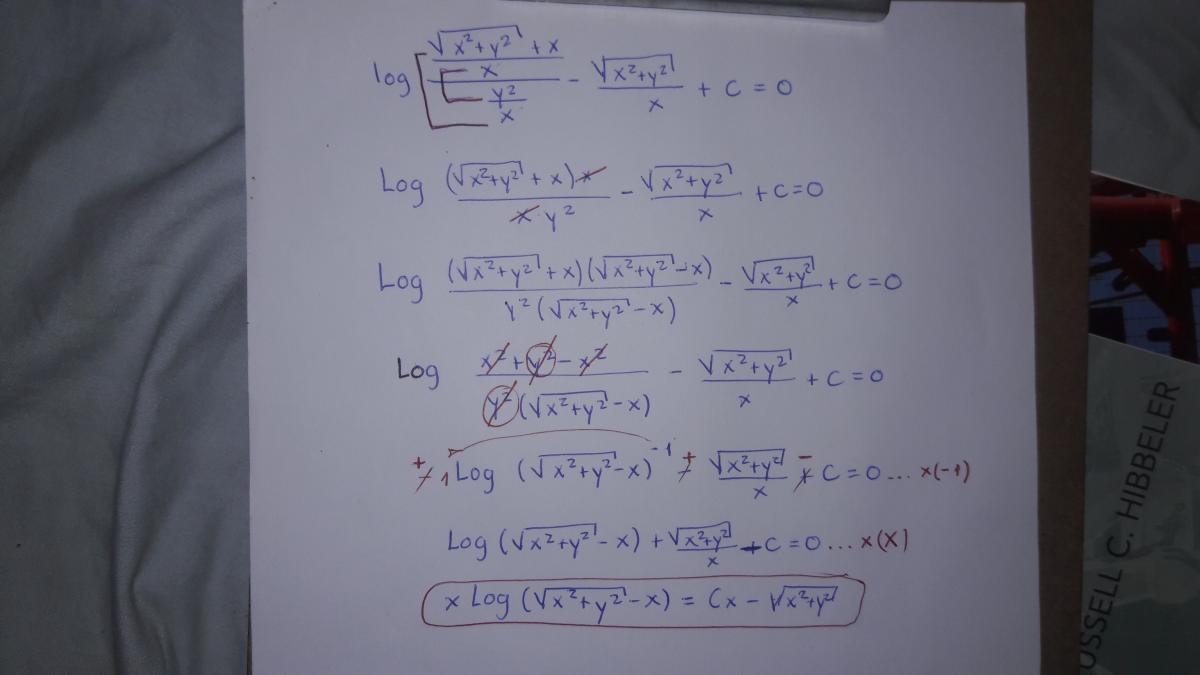 log [((√(x²+y²) + x)/x)/(y²/x)] − √(x²+y²)/x + C = 0
Log (√(x²+y²) + x)x/(x y²) − √(x²+y²)/x + C = 0
Log (√(x²+y²) + x)(√(x²+y²) − x)/(y²(√(x²+y²) − x)) − √(x²+y²)/x + C = 0
Log (x² + y² − x²)/(y²(√(x²+y²) − x)) − √(x²+y²)/x + C = 0
+ − 1 Log (√(x²+y²) − x)⁻¹ + − √(x²+y²)/x − + C = 0 ... x(-1)
Log (√(x²+y²) − x) + √(x²+y²)/x − C = 0 ... x(x)
x Log (√(x²+y²) − x) = Cx − √(x²+y²)
USSELL C. HIBBELER